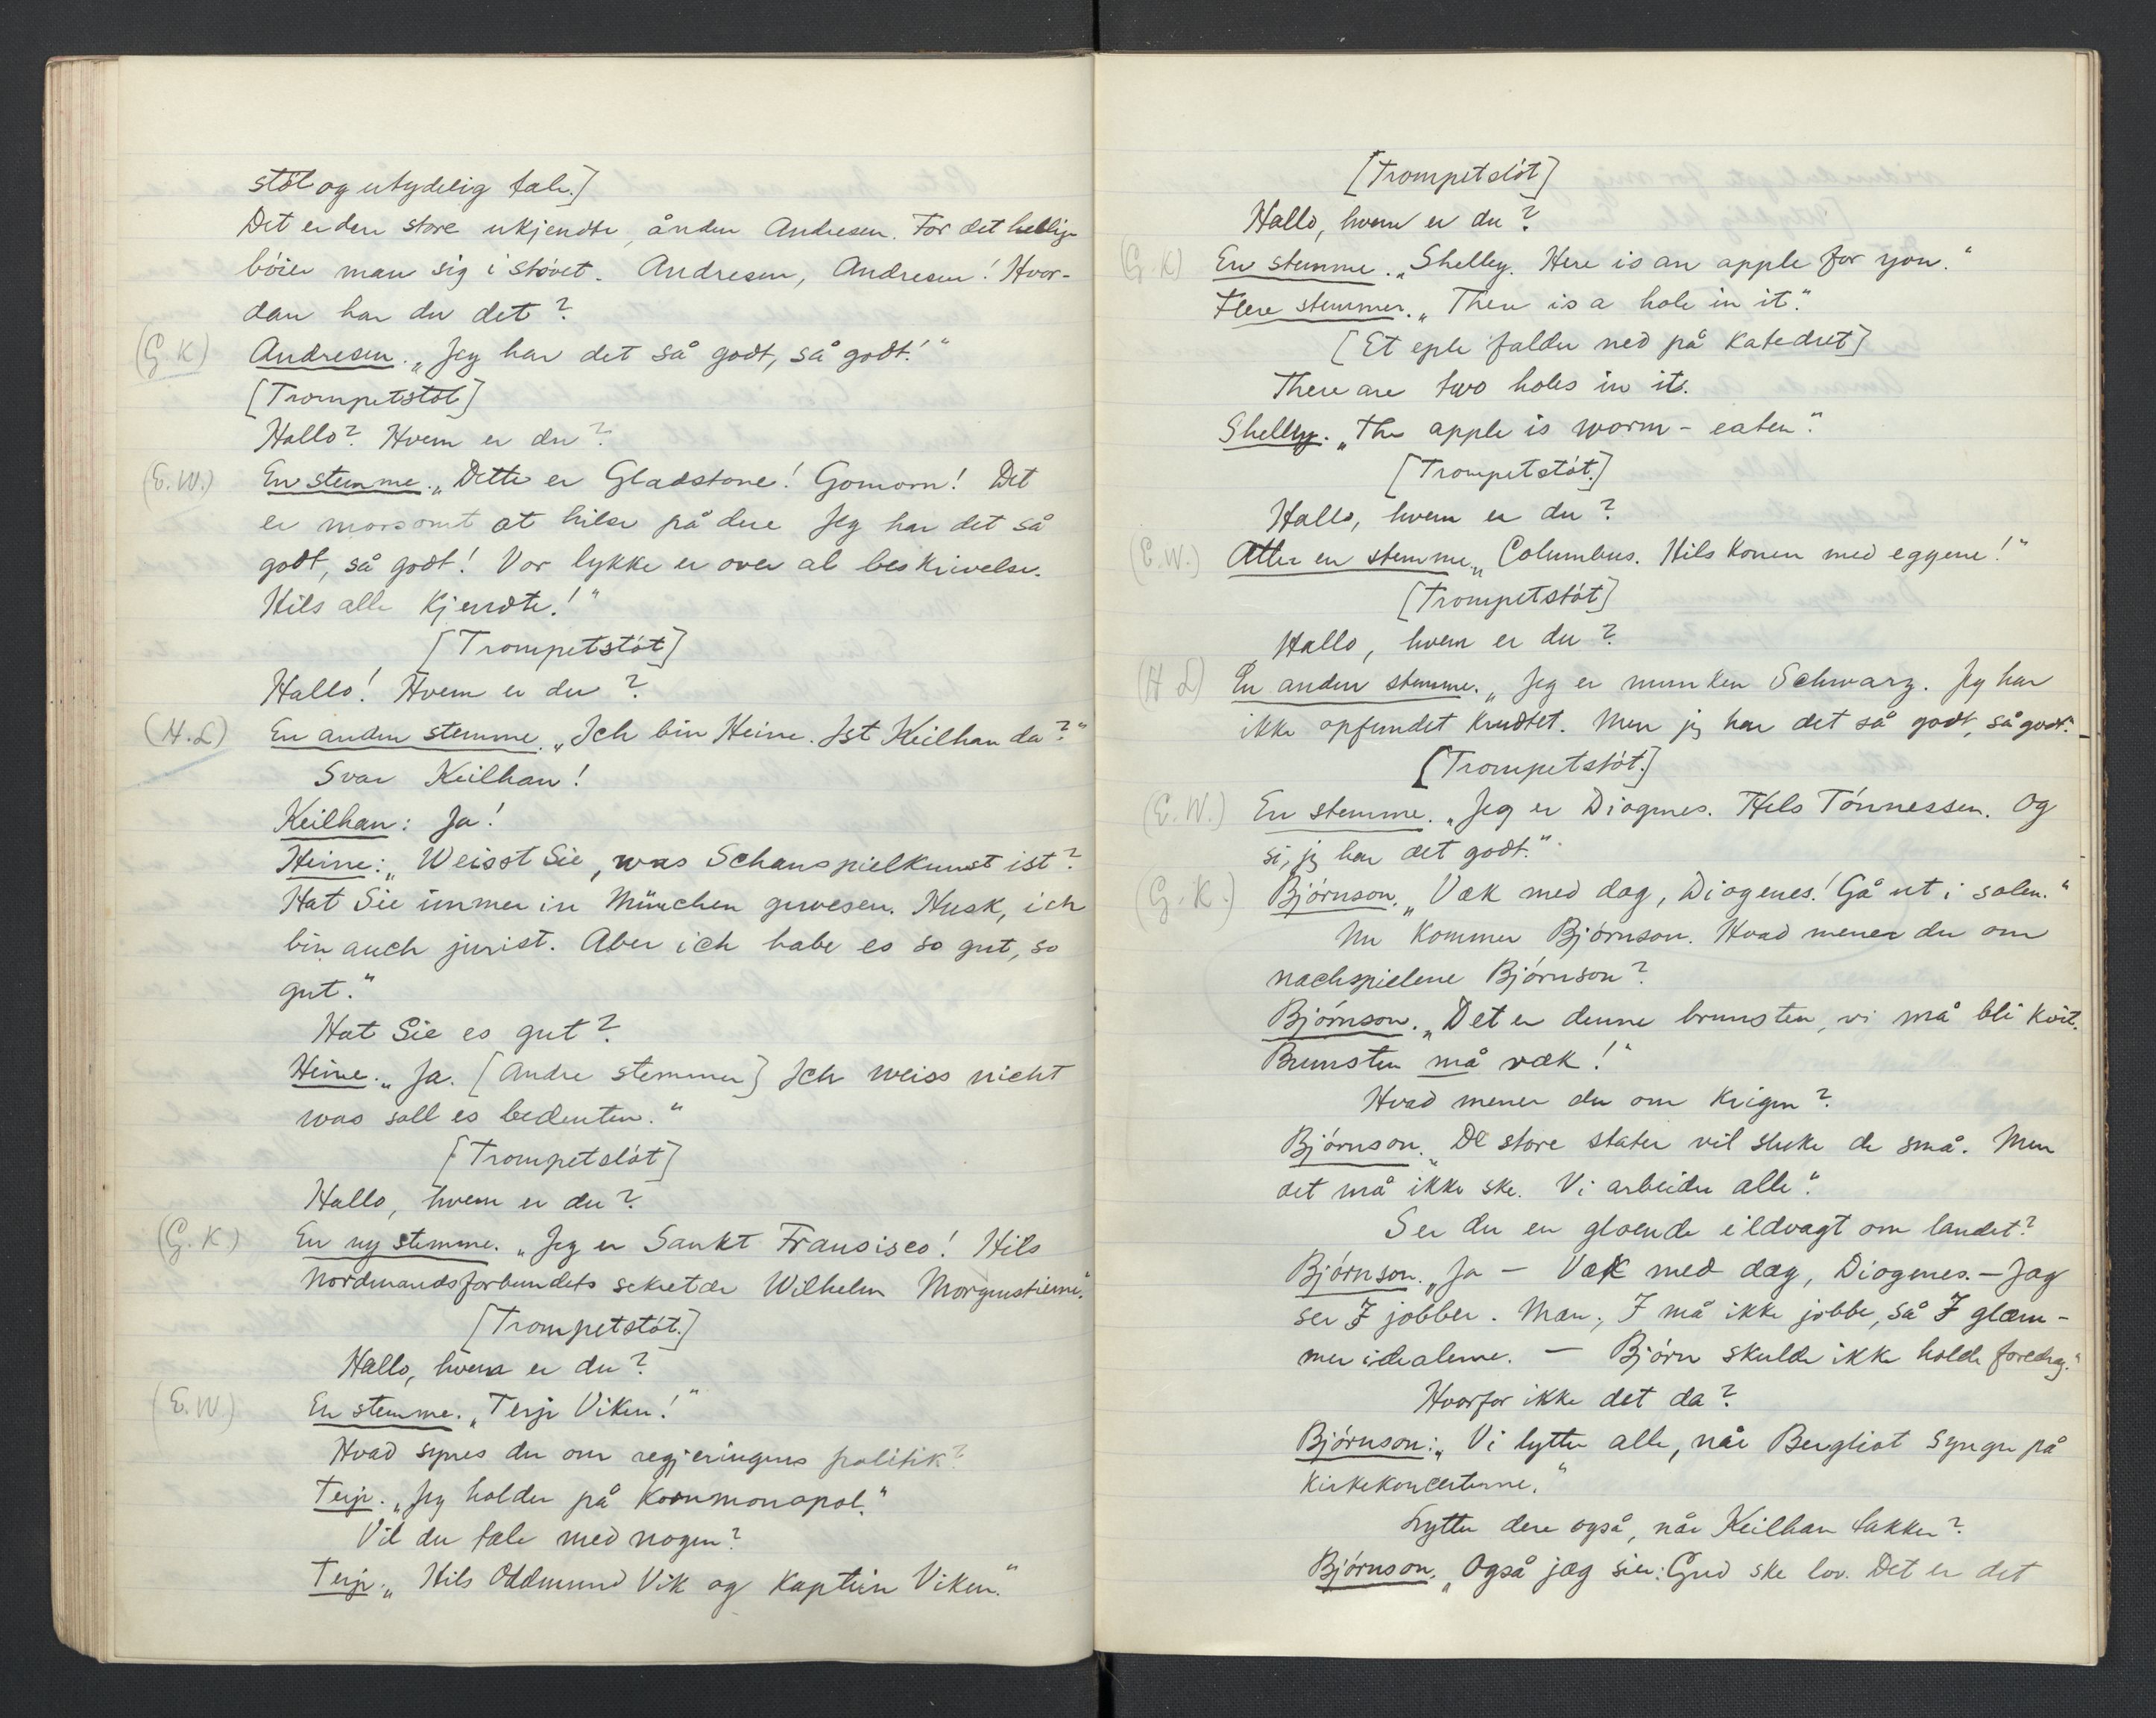 støt og utydelig tale.]
Det er den store ukjendte, ånden Andresen. For det hellige
bøier man sig i støvet. Andresen, Andresen! Hvor-
dan har du det?
(G K) Andresen. „Jeg har det så godt, så godt!“
[Trompetstøt]
Hallo? Hvem er du?
(E.W.) En stemme. „Dette er Gladstone! Gomorn! Det
er morsomt at hilse på dere Jeg har det så
godt, så godt! Vor lykke er over al beskrivelse.
Hils alle kjendte!“
[Trompetstøt]
Hallo! Hvem er du?
(H.L) En anden stemme. „Ich bin Heine. Ist Keilhau da?“
Svar Keilhau!
Keilhau: Ja!
Heine: „Weisst Sie, was Schauspielkunst ist?
Hat Sie immer in München gewesen. Husk, ich
bin auch jurist. Aber ich habe es so gut, so
gut.“
Hat Sie es gut?
Heine. „Ja. [Andre stemmer] Ich weiss nicht
was soll es bedeuten.“
[Trompetstøt]
Hallo, hvem er du?
(G.K) En ny stemme. „Jeg er Sankt Fransisco! Hils
Nordmandsforbundets sekretær Wilhelm Morgenstierne“
[Trompetstøt.]
Hallo, hvem er du?
(E.W) En stemme. „Terje Viken!“
Hvad synes du om regjeringens politik?
Terje. „Jeg holder på kornmonopol.“
Vil du tale med nogen?
Terje. „Hils Oddmund Vik og kaptein Viken.“
[Trompetstøt]
Hallo, hvem er du?
(G.K) En stemme. „Shelley. Here is an apple for you.“
Flere stemmer. „There is a hole in it.“
[Et eple falder ned på katedret]
There are two holes in it.
Shelley. „The apple is worm-eaten“.
[Trompetstøt.]
Hallo, hvem er du?
(E.W.) Atter en stemme „Columbus. Hils konen med eggene!“
[Trompetstøt]
Hallo, hvem er du?
(H L) En anden stemme. „Jeg er munken Schwarz. Jeg har
ikke opfundet kruttet. Men jeg har det så godt, så godt.“
[Trompetstøt.]
(E.W.) En stemme. „Jeg er Diogenes. Hels Tønnessen. Og
si, jeg har det godt.“
(G.K.) Bjørnson. „Væk med dæg, Diogenes! Gå ut i solen.“
Nu kommer Bjørnson. Hvad mener du om
nachspielene Bjørnson?
Bjørnson. „Det er denne brunsten, vi må bli kvit.
Brunsten må væk!“
Hvad mener du om krigen?
Bjørnson. „De store stater vil sluke de små. Men
det må ikke ske. Vi arbeider alle“.
Ser du en gloende ildvagt om landet?
Bjørnson. „Ja – Væk med dæg, Diogenes. – Jag
ser I jobber. Mæn, I må ikke jobbe, så I glæm-
mer idealerne. – Bjørn skulde ikke holde foredrag.“
Hvorfor ikke det da?
Bjørnson: „Vi lytter alle, når Bergliot synger på
kirkekoncerterne.“
Lytter dere også, når Keilhau takker?
Bjørnson. „Også jæg sier: Gud ske lov. Det er det